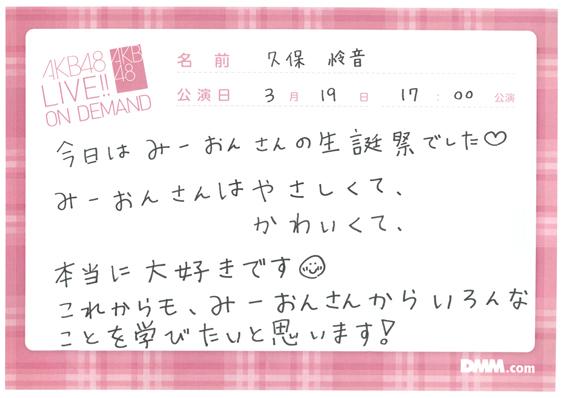 AKB48
LIVE!!
ON DEMAND
AKB
48
名前 久保 怜音
公演日 3月19日 17:00公演
今日はみーおんさんの生誕祭でした♡
みーおんさんはやさしくて、
かわいくて、
本当に大好きです☺
これからも、みーおんさんからいろんな
ことを学びたいと思います!
DMM.com